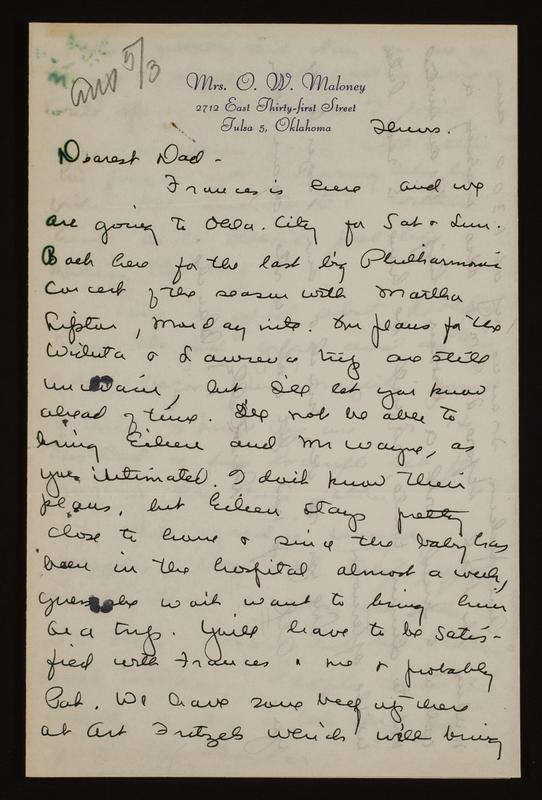 ans 5/3
Mrs. O. W. Maloney
2712 East Thirty-first Street
Tulsa 5, Oklahoma
Thurs.
Dearest Dad -
Frances is here and we
are going to Okla. City for Sat & Sun.
Back here for the last big Philharmonic
Concert of the season with Martha
Lipton, Monday nite. Our plans for the
Wichita & Lawrence trip are still
uncertain, but I'll let you know
ahead of time. I'll not be able to
bring Eileen and Mr Wayne, as
you intimated. I don't know their
plans, but Eileen stays pretty
close to home & since the baby has
been in the hospital almost a week,
guess she wont want to bring him
on a trip. You'll have to be satis-
fied with Frances & me & probably
Pat. We have some beef up there
at Art Fritzels which we'll bring